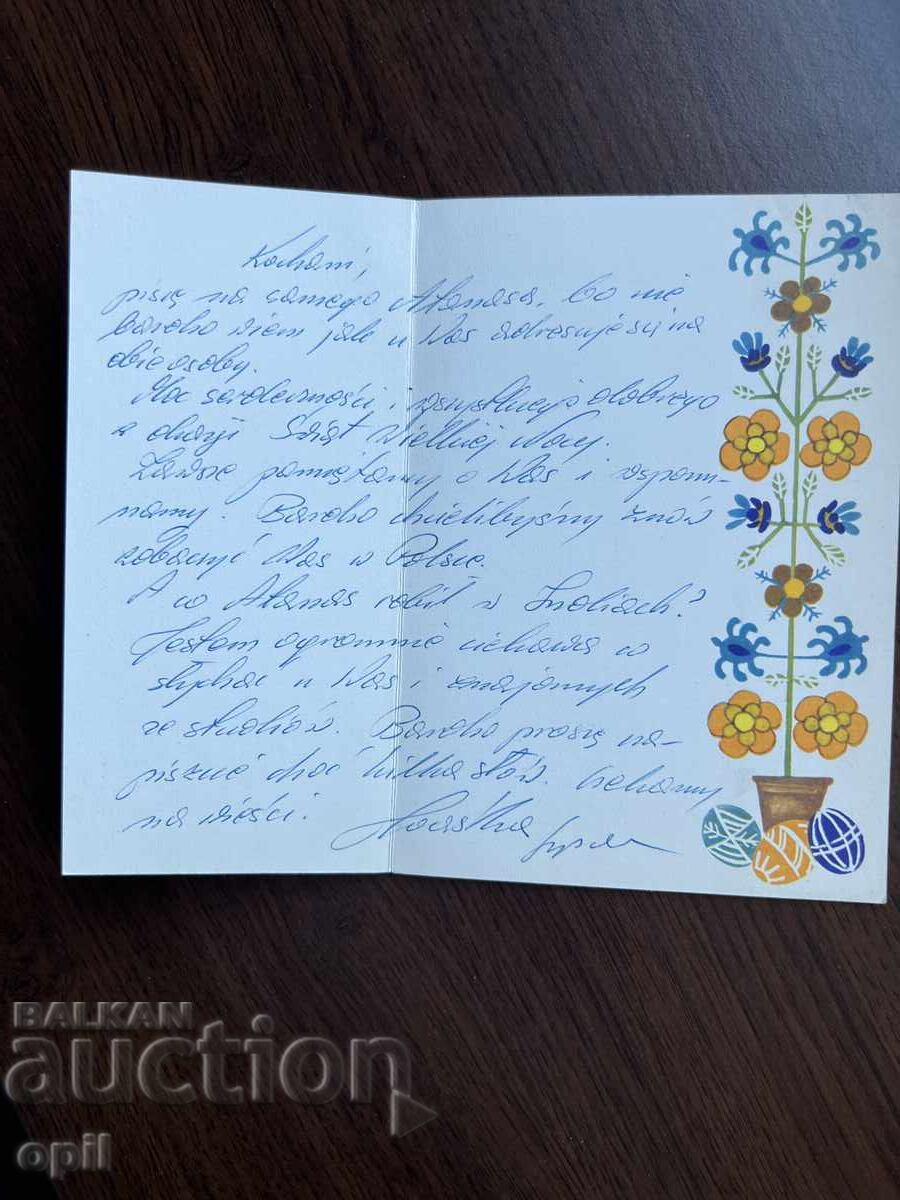 Kochani,
piszę na samego Atanasa, bo nie
bardzo wiem jak u Was adresuje się na
obie osoby.
Moc serdeczności i wszystkiego dobrego
z okazji Świąt Wielkiej Nocy.
Zawsze pamiętamy o Was i wspomi-
namy. Bardzo chcielibyśmy znów
zobaczyć Was w Polsce.
A co Atanas robił w Indiach?
Jestem ogromnie ciekawa co
słychać u Was i znajomych
ze studiów. Bardzo proszę na-
piszcie choć kilka słów. Czekamy
na wieści.
BALKAN
auction
opil